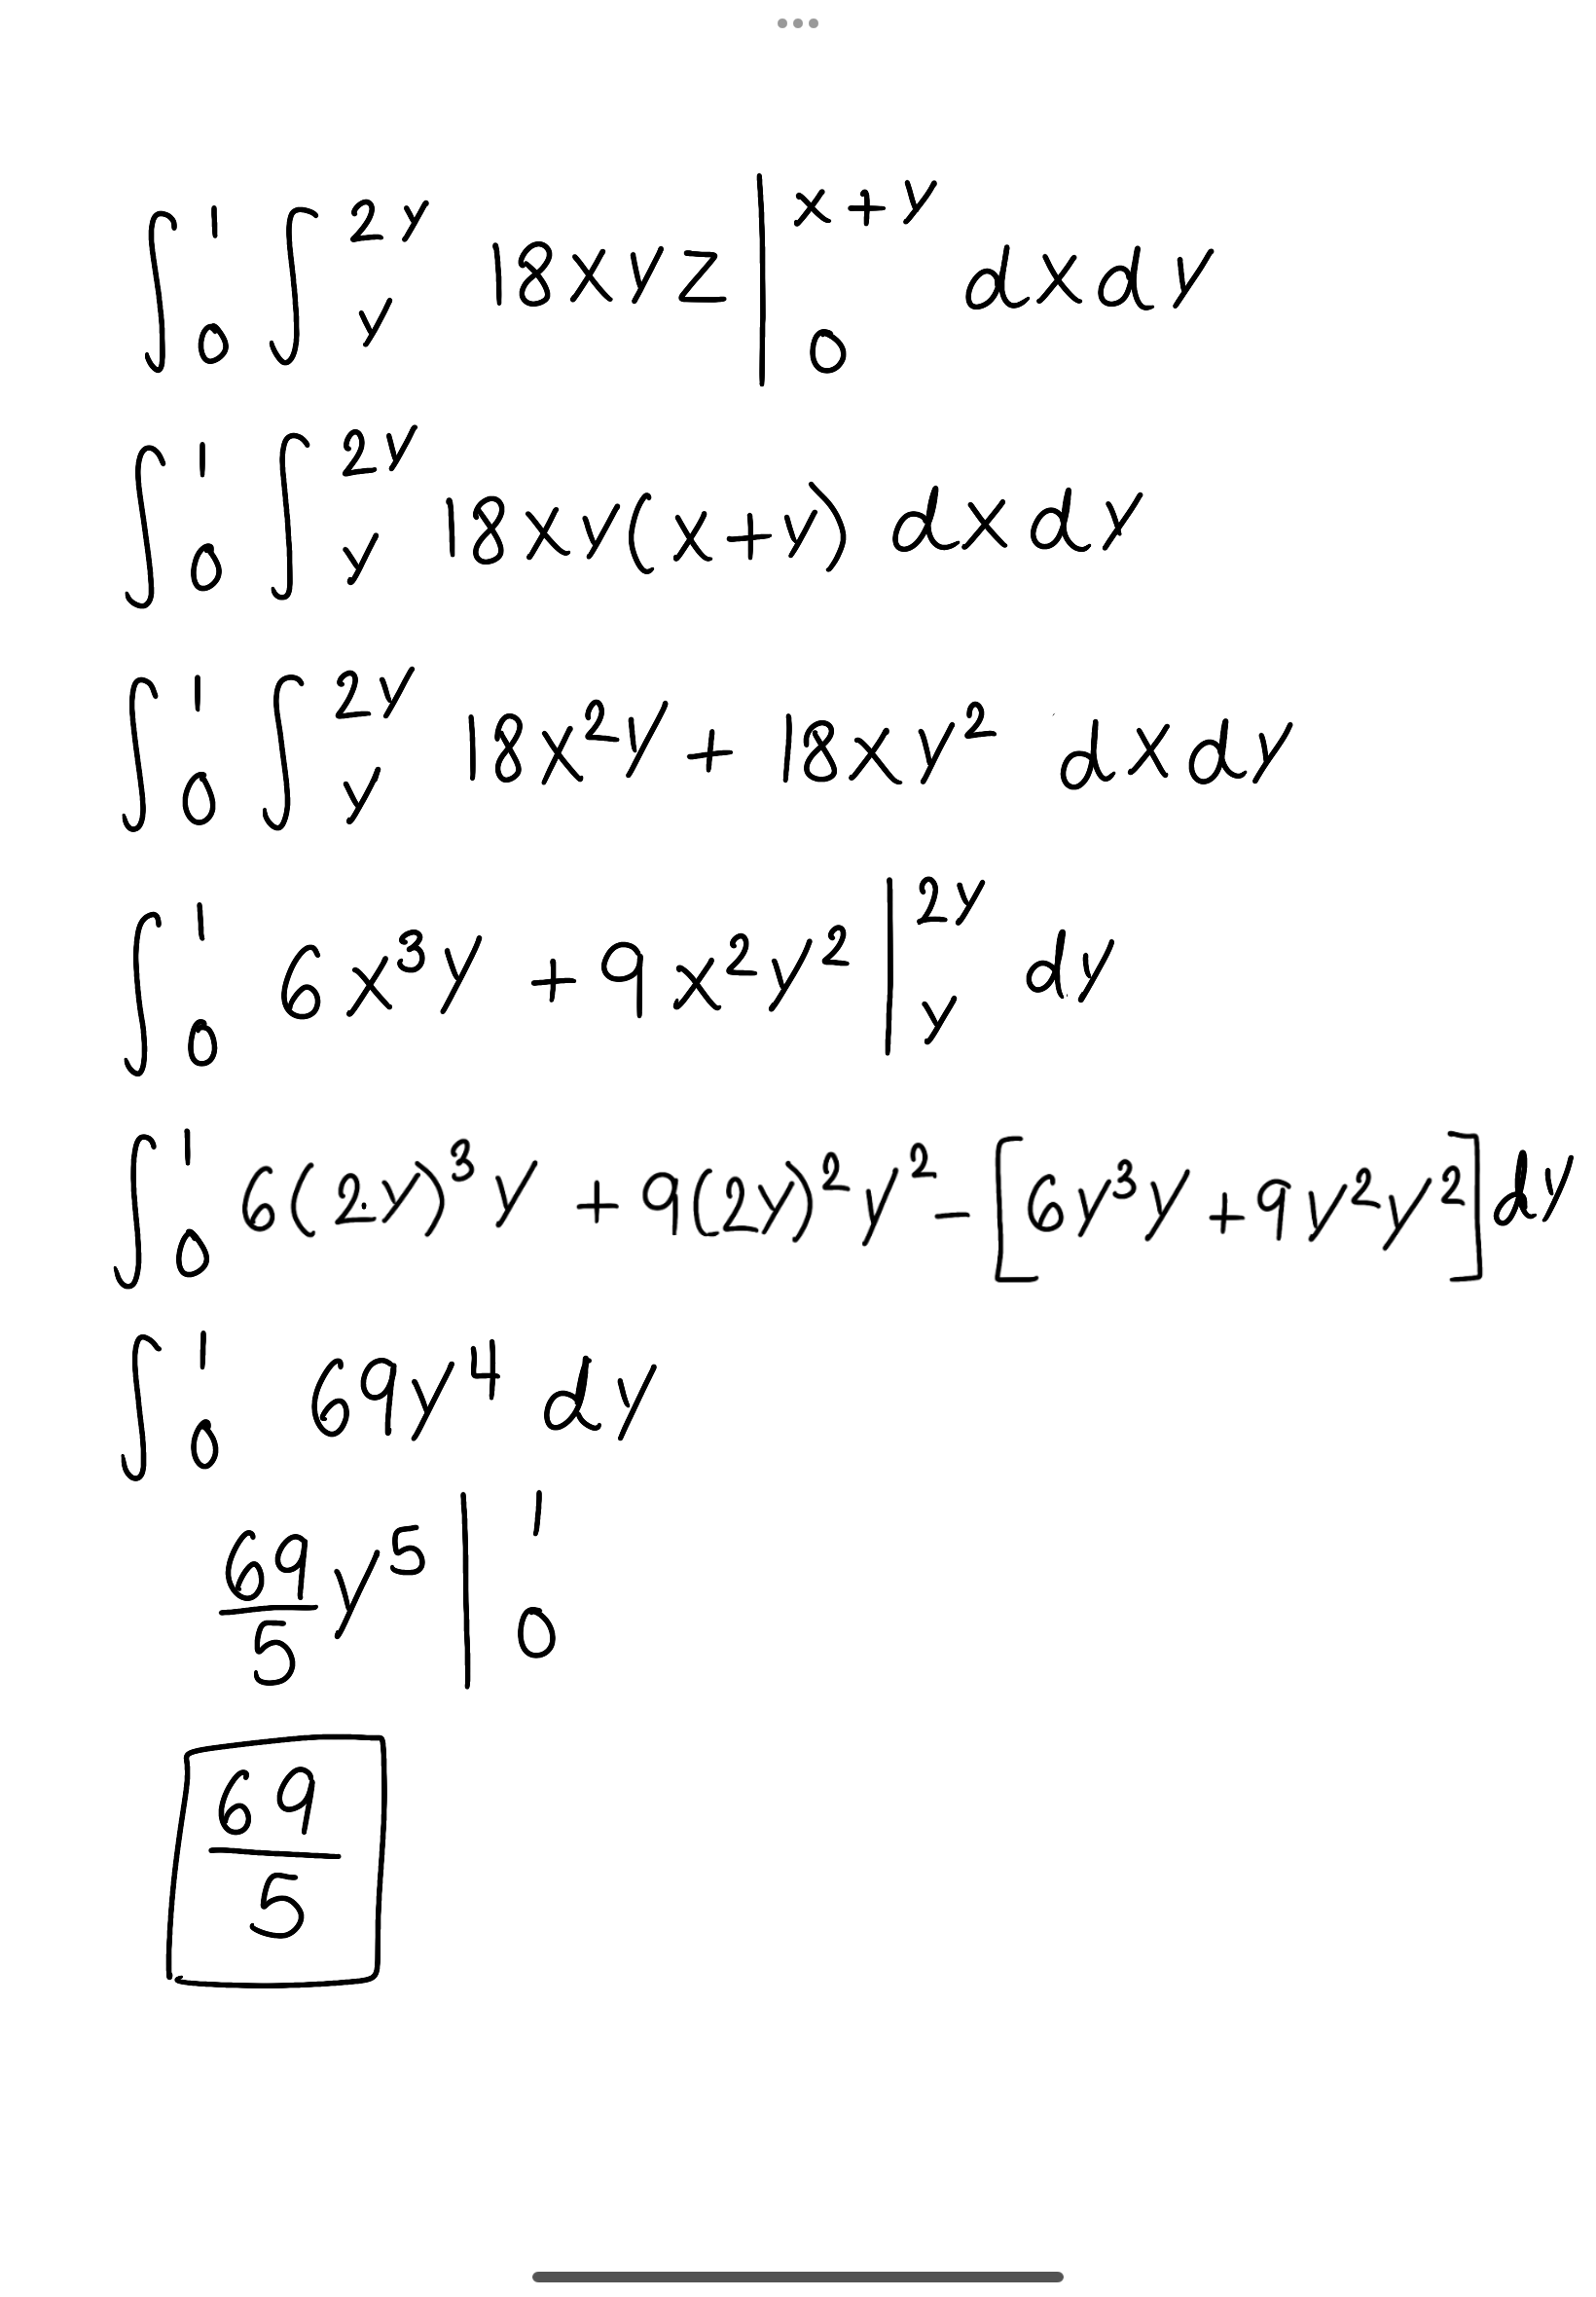 ∫₀¹ ∫_y^{2y} 18xyz |₀^{x+y} dxdy
∫₀¹ ∫_y^{2y} 18xy(x+y) dxdy
∫₀¹ ∫_y^{2y} 18x²y + 18xy² dxdy
∫₀¹ 6x³y + 9x²y² |_y^{2y} dy
∫₀¹ 6(2y)³y + 9(2y)²y² - [6y³y + 9y²y²] dy
∫₀¹ 69y⁴ dy
69/5 y⁵ |₀¹
69/5